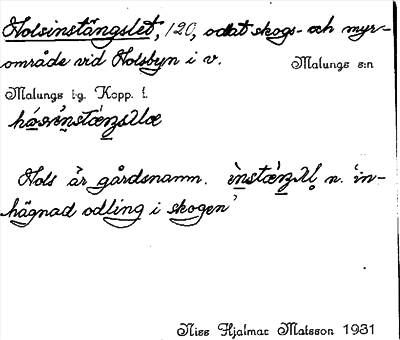 Holsinstängslet, /20, odlat skogs- och myr-
område vid Holsbyn i v. Malungs s:n
Malungs tg. Kopp. l.
Hols är gårdsnamn. n. 'in-
hägnad odling i skogen'
Nils Hjalmar Matsson 1931